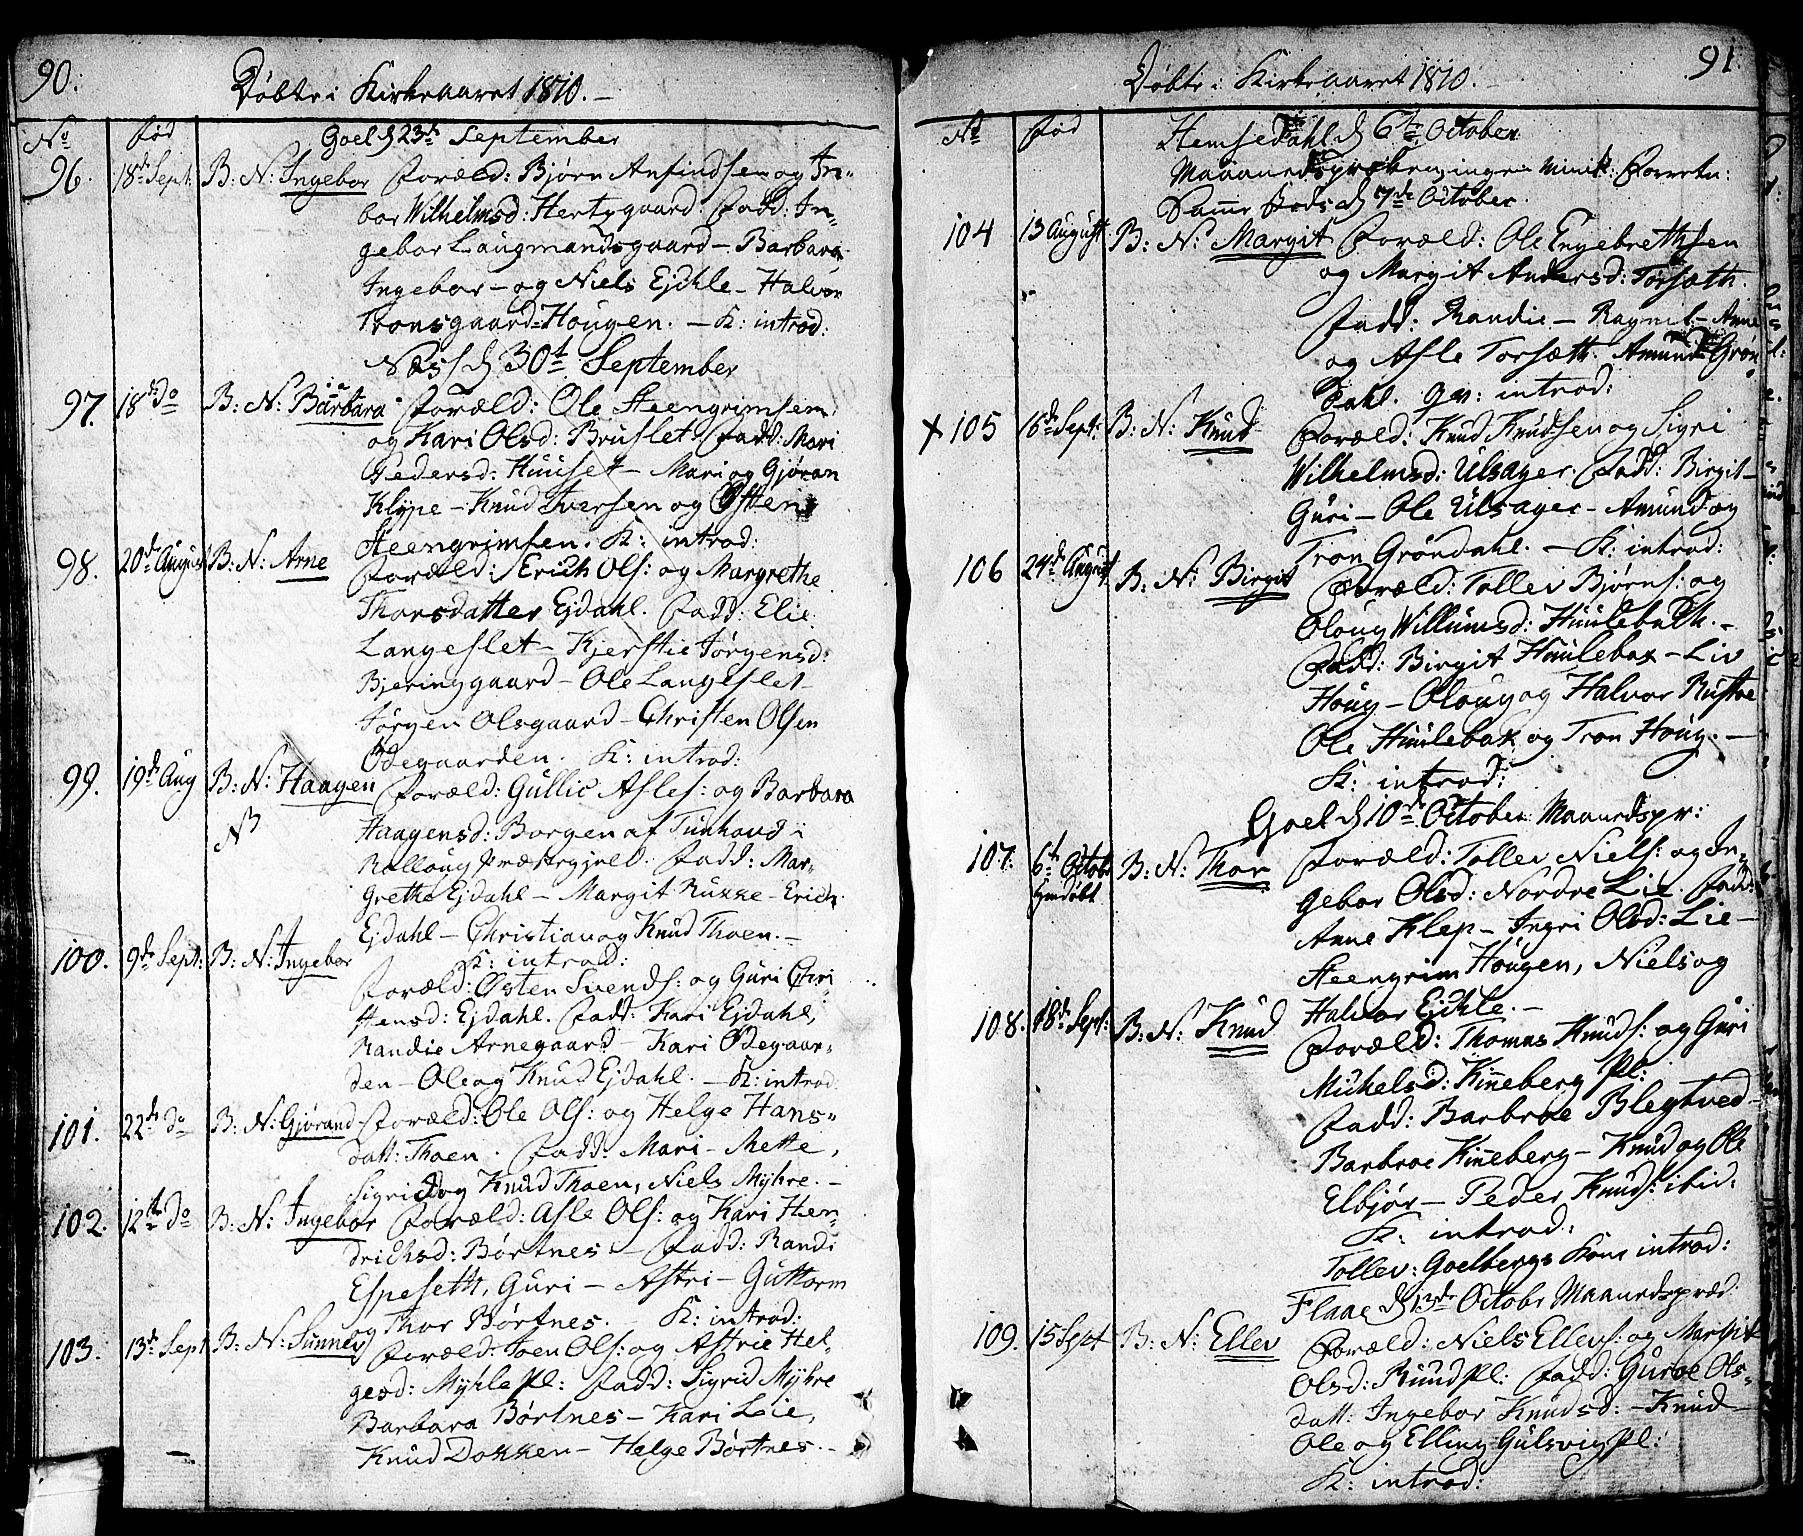 90.
Døbte i Kirkeaaret 1810. –
No Fød
Goel d 23de September
96. 18de Sept. B: N: Ingebor Foræld: Bjørn Anfindsen og In-
bor Wilhelmsd: Hertzgaard. Fadd: In-
gebor Laugmandsgaard – Barbara
Ingebor – og Niels Ejchle – Halvor
Tronsgaard-Hougen. – K: introd:
Næss d 30t September
97. 18de do B: N: Barbara Foræld: Ole Steengrimsen
og Kari Olsd: Bruslet. Fadd: Mari
Pedersd: Huuset – Mari og Gjøran
Klype – Knud Iversen og Østen
Steengrimsen. K: introd:
98. 20de August B: N: Arne Foræld: Erich Ols: og Margrethe
Thorsdatter Ejdahl. Fadd: Elie
Langeslet – Kjerstie Jørgensd:
Bjeringgaard – Ole Langeslet
Jørgen Olsgaard – Christen Olsen
Ødegaarden. K: introd:
99. 19de Aug B: N: Haagen Foræld: Gullic Asles: og Barbara
NB Haagensd: Borgen af Tunhovd i
Rolloug Præstegjeld. Fadd: Mar-
grethe Ejdahl – Margit Rukke – Erich
Ejdahl – Christian og Knud Thoen. –
K: introd:
100. 9de Sept: B: N: Ingebor Foræld: Østen Svends: og Guri Chri-
stensd: Ejdahl. Fadd: Kari Ejdahl,
Randie Arnegaard – Kari Ødegaar-
den – Ole og Knud Ejdahl. – K: introd.
101. 22de do B: N: Gjørand Foræld: Ole Ols: og Helge Hans-
datt: Thoen. Fadd: Mari – Mette,
Sigrid og Knud Thoen, Niels Myhre. –
102. 12te do B: N: Ingebor Foræld: Asle Ols: og Kari Hen-
driksd: Børtnes – Fadd: Randi
Espeseth, Guri – Astri – Guttorm
og Thor Børtnes. – K: introd:
103. 13de Sept B: N: Sunnev Foræld: Joen Ols: og Astrie Hel-
gesd: Myhle Pl: Fadd: Sigrid Myhre
Barbara Børtnes – Kari Lie,
Knud Dokken – Helge Børtnes. –
91.
Døbte i Kirkeaaret 1810. –
No Fød
Hemsedahl d 6te October
Samme Steds d 7de October.
104 13 August B: N: Margit Foræld: Ole Engebrethsen
og Margit Andersd: Torsæth.
Fadd: Randie – Ragnil – Anne
og Asle Torsæth. Amund Grøn-
dahl. qv: introd:
x 105 16de Sept: B: N: Knud Foræld: Knud Knudsen og Sigri
Wilhelmsd: Ulsager. Fadd: Birgit –
Guri – Ole Ulsager – Amund og
Tron Grøndahl. – K: introd:
106 24de August B: N: Birgit Foræld: Tollev Bjørns: og
Oloug Willumsd: Huulebach. –
Fadd: Birgit Huulebak – Liv
Houg – Oloug og Halvor Rustne
Ole Huulebak og Tron Houg. –
K: introd:
Goel d 10de October Maanedspr:
107. 6te Octobr B: N: Thor Foræld: Tollev Niels: og In-
hjemdøbt gebor Olsd: Nordre Lie. Fadd:
Anne Klep – Ingri Olsd: Lie –
Steengrim Hougen, Niels og
Halvor Ejchle. –
108. 18de Sept: B: N: Knud Foræld: Thomas Knuds: og Guri
Michelsd: Kineberg Pl:
Fadd: Barbroe Blegtved –
Barbroe Kineberg – Knud og Ole
Elbjør – Peder Knuds: ibid:
K: introd:
Tollev: Goelbergs Kone introd:
Flaae d 13de Octobr Maanedspræd:
109. 15 Sept B: N: Ellev Foræld: Niels Ellevs: og Margit
Olsd: Ruud Pl: Fadd: Guroe Ols-
datt: Ingebor Knudsd: – Knud –
Ole og Elling Gulsvig Pl:
K: introd: